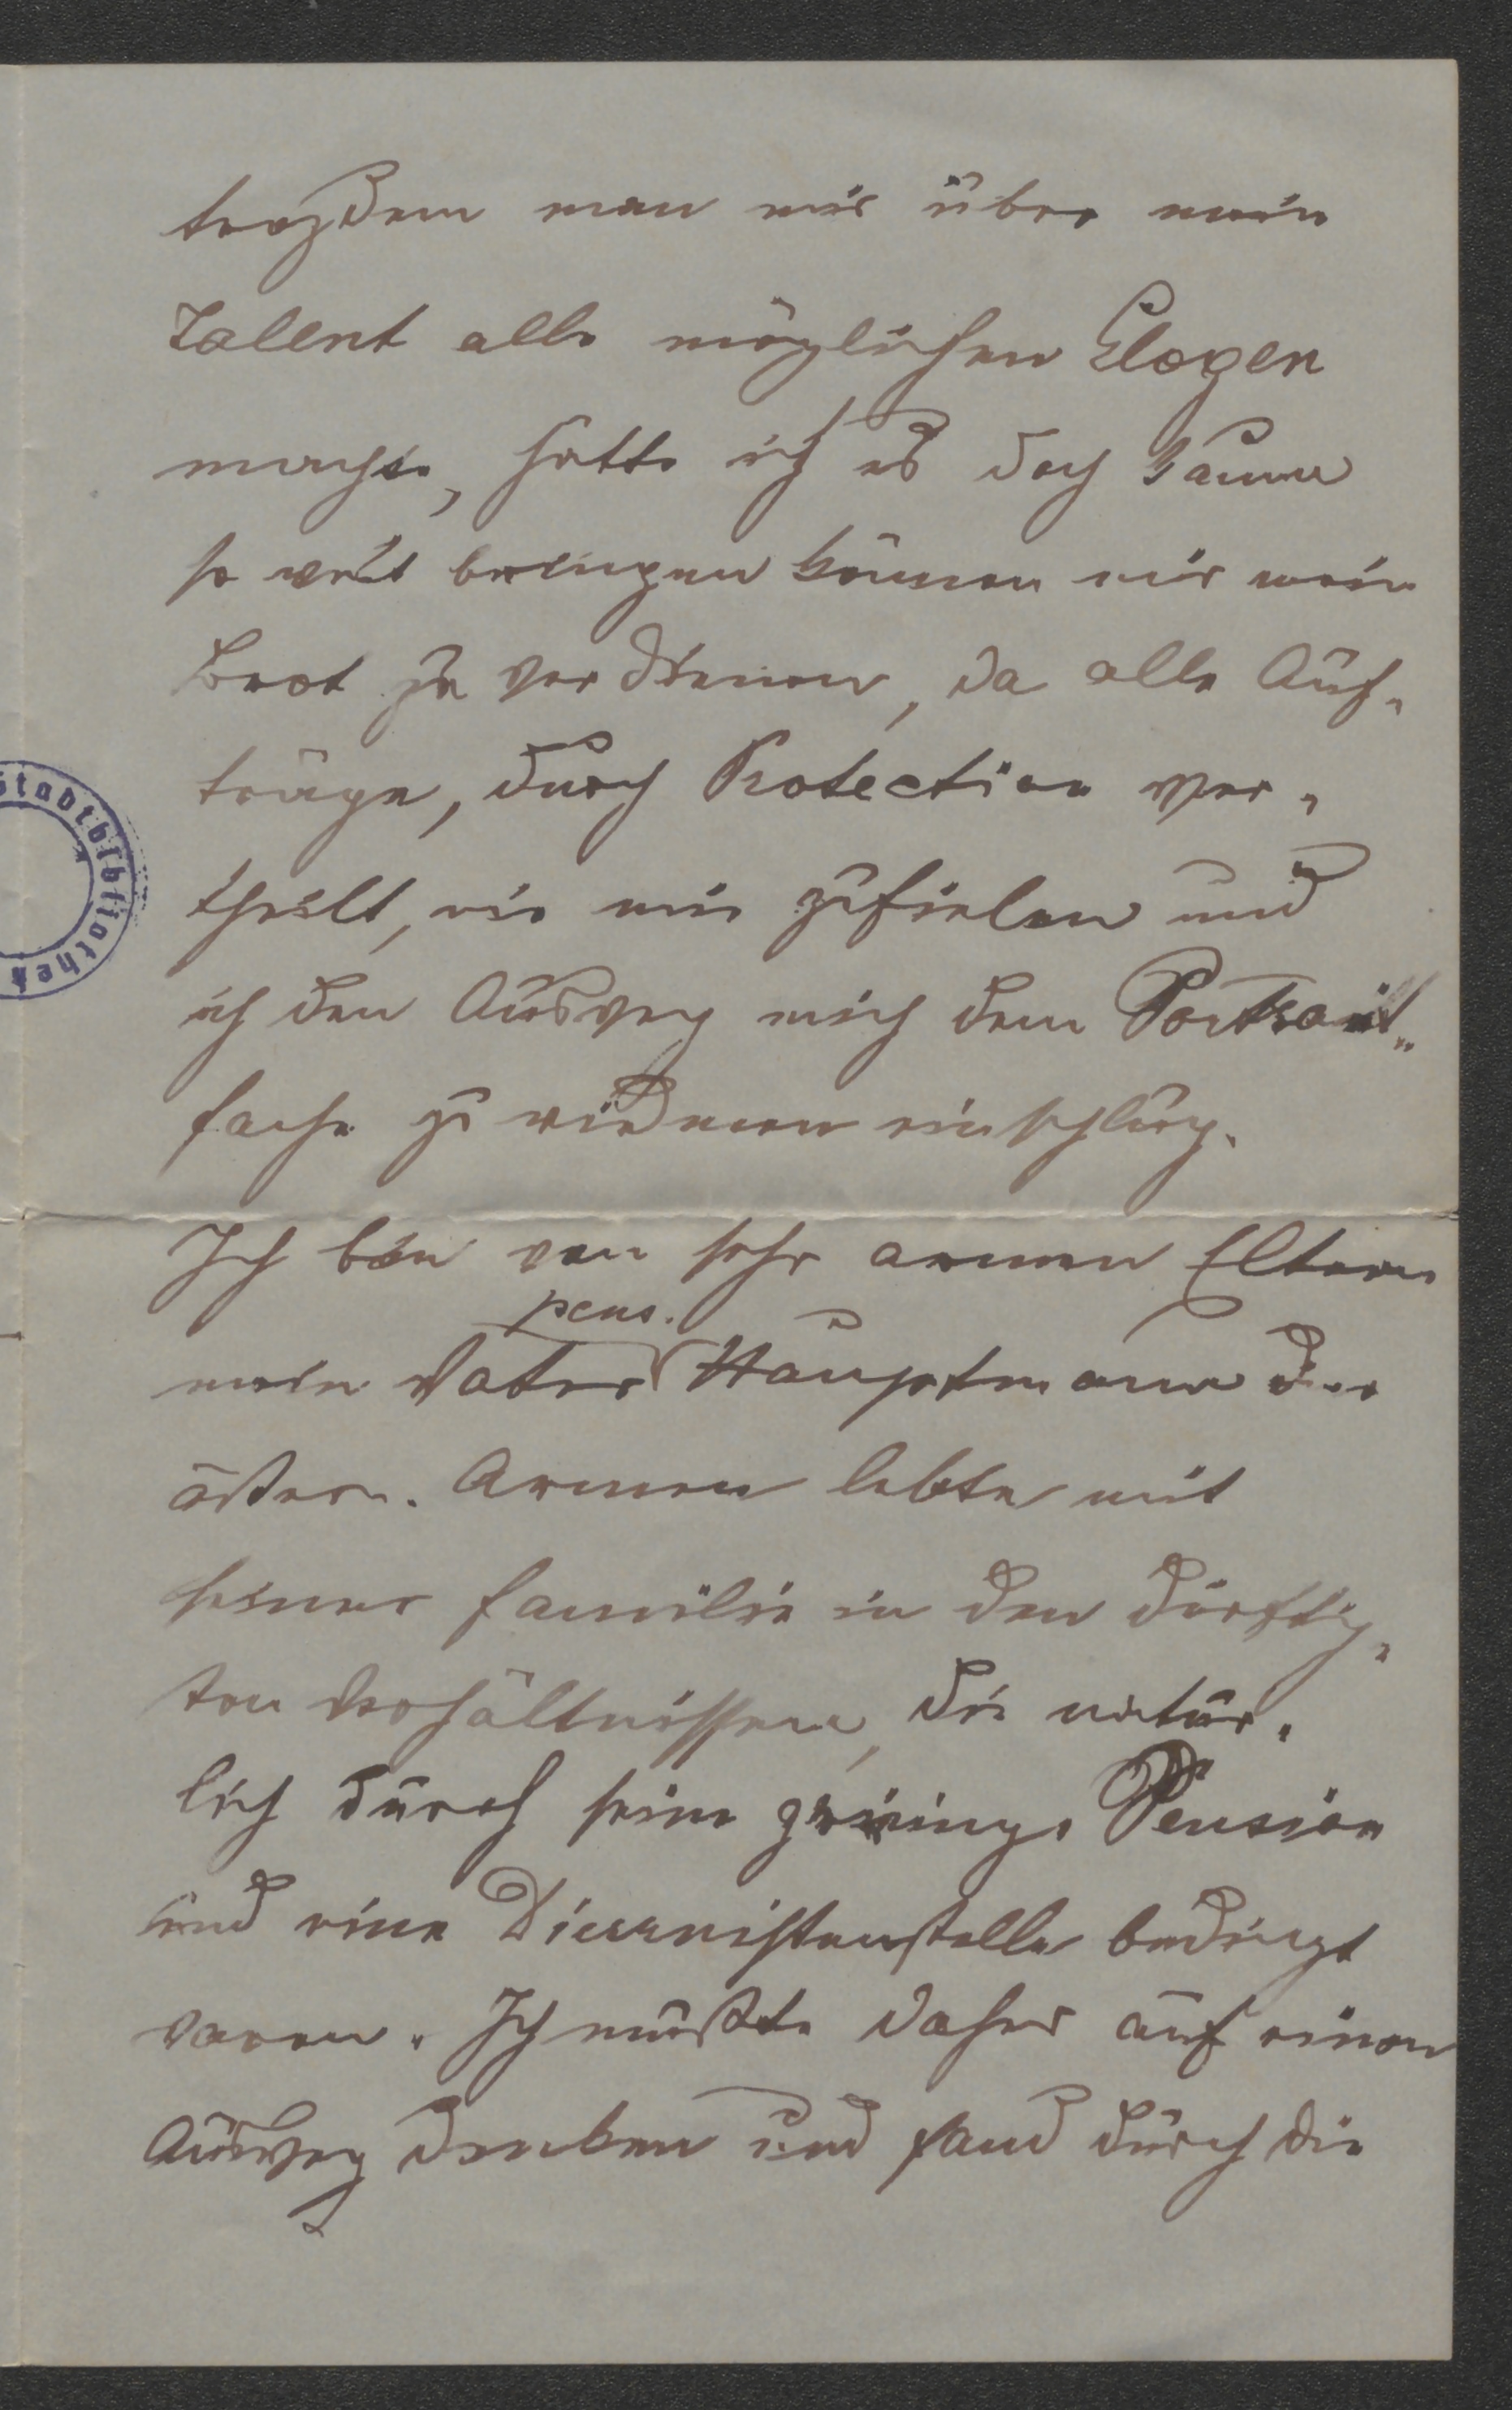 trozdem man mir über mein
Talent alle möglichen Elogen
machte, hatte ich es doch kaum
so weit bringen können mir mein
Brot zu verdienen, da alle Auf-
träge, durch Protection ver-
theilt, nie mir zufielen und
ich den Ausweg mich dem Portrait-
fache zu widmen einschlug.
Ich bin von sehr armen Eltern
pens.
mein Vater Hauptmann der
österr. Armee lebte mit
seiner Familie in den dürftig-
sten Verhältnissen, die natür-
lich durch seine geringe Pension
und eine Diurnistenstelle bedingt
waren. Ich mußte daher auf einen
Ausweg denken und fand durch die
Stadtbibliothek